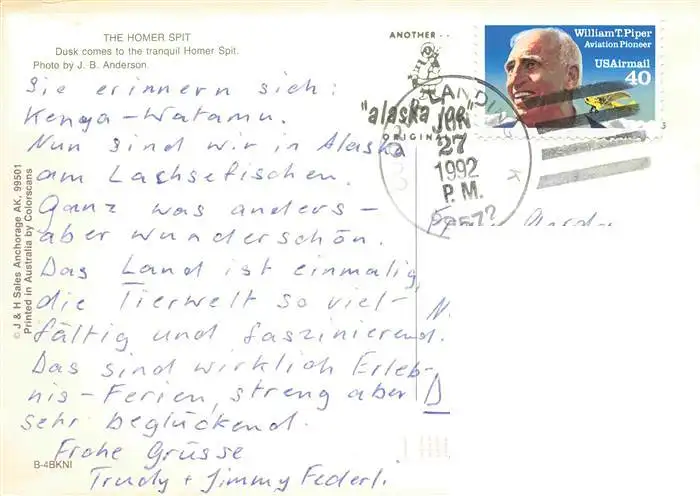 THE HOMER SPIT
Dusk comes to the tranquil Homer Spit.
Photo by J. B. Anderson.
Sie erinnern sich:
Kenya-Watamu.
Nun sind wir in Alaska
am Lachsefischen.
Ganz was anders -
aber wunderschön.
Das Land ist einmalig,
die Tierwelt so viel-
fältig und faszinierend.
Das sind wirklich Erleb-
nis-Ferien, streng aber
sehr beglückend.
Frohe Grüsse
Trudy + Jimmy Federli.
B-4BKNI
© J & H Sales Anchorage AK, 99501
Printed in Australia by Colorscans
ANOTHER
"alaska joe"
ORIGINAL
William T. Piper
Aviation Pioneer
USAirmail
40
LANDING
27
1992
P.M.
99572
N.
D